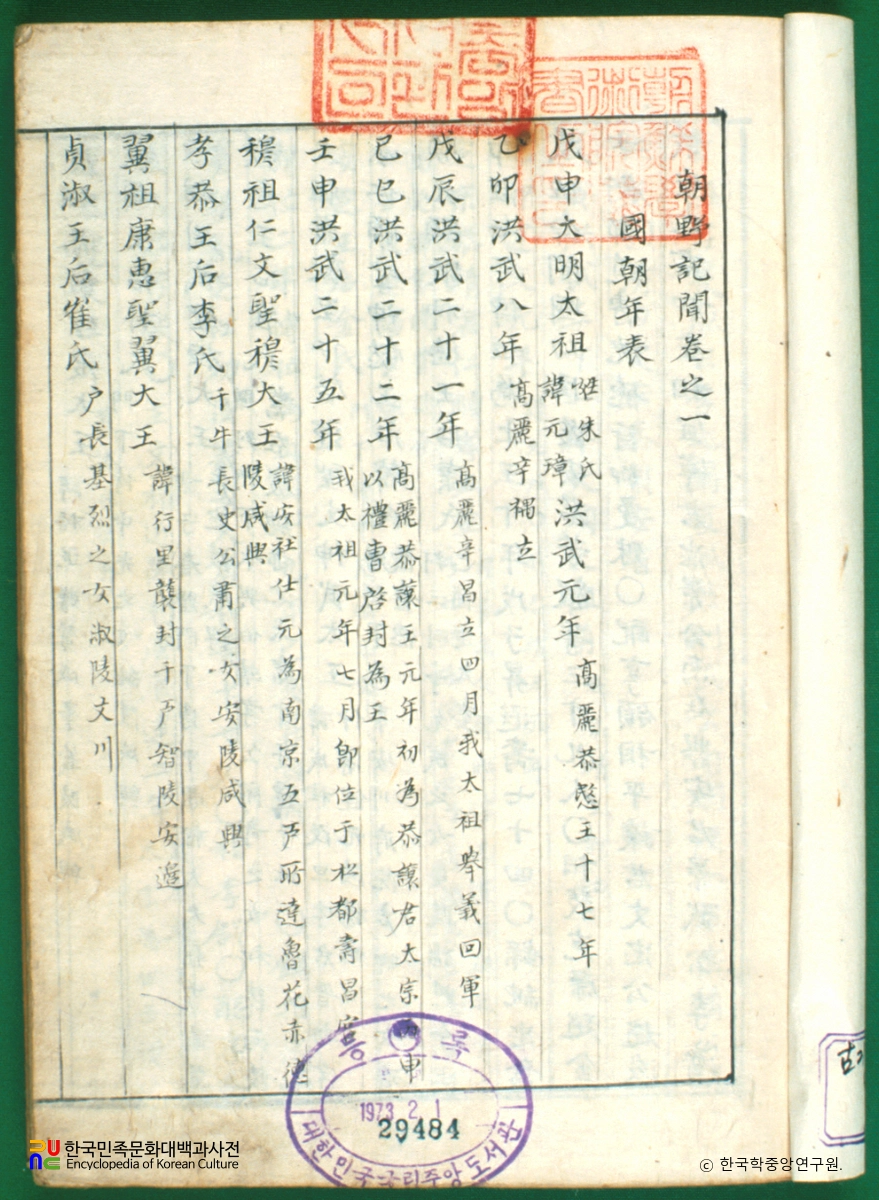 朝野記聞卷之一
國朝年表
戊申大明太祖 姓朱氏
諱元璋 洪武元年 高麗恭愍王十七年
乙卯洪武八年 高麗辛禑立
戊辰洪武二十一年 高麗辛昌立四月我太祖擧義回軍
己巳洪武二十二年 高麗恭讓王元年初為恭讓君太宗 申
以禮曹啓封為王
壬申洪武二十五年 我太祖元年七月卽位于松都壽昌宮
穆祖仁文聖穆大王 諱安社仕元為南京五千戶所達魯花赤德
陵咸興
孝恭王后李氏 千牛長史公肅之女安陵咸興
翼祖康惠聖翼大王 諱行里襲封千戶智陵安邊
貞淑王后崔氏 戶長基烈之女淑陵文川
등록
1973 2 1
29484
대한민국국립중앙도서관
한국민족문화대백과사전
Encyclopedia of Korean Culture
© 한국학중앙연구원.